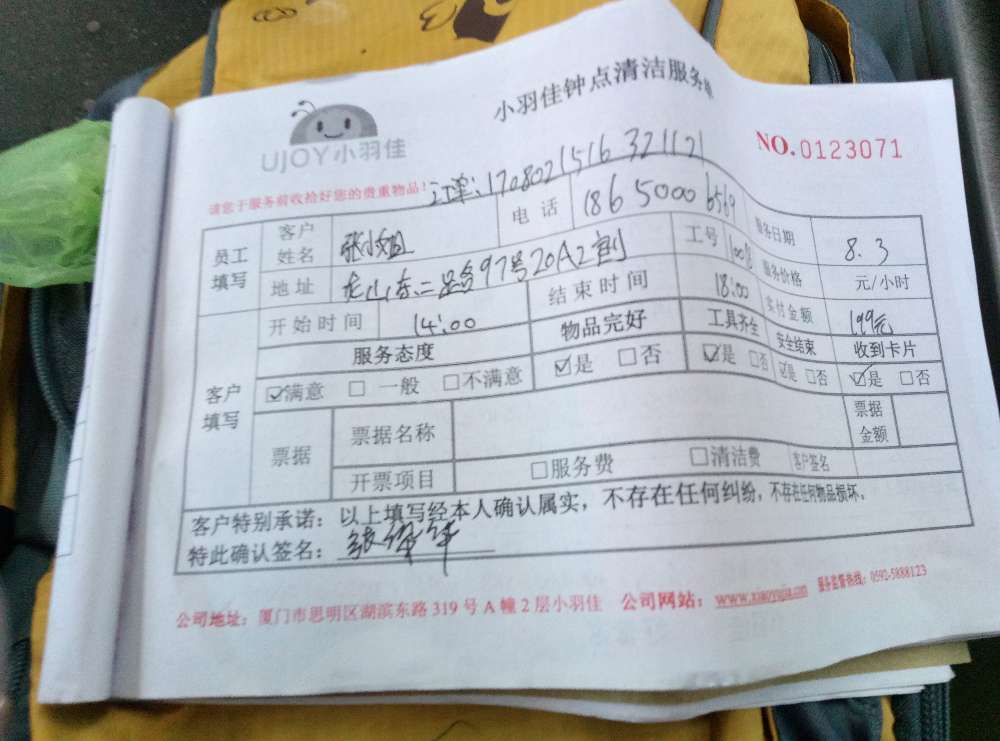 小羽佳钟点清洁服务单
UJOY小羽佳
NO.0123071
请您于服务前收拾好您的贵重物品!
订单:1708021516321121
员工填写 客户姓名 张小姐 电话 18650006569 服务日期 8.3
地址 97号20A2 工号 服务价格 元/小时
开始时间 14:00 结束时间 18:00 实付金额 199元
服务态度 物品完好 工具齐全 安全结束 收到卡片
客户填写 ☑满意 □一般 □不满意 ☑是 □否 ☑是 □否 ☑是 □否 ☑是 □否
票据 票据名称 票据金额
开票项目 □服务费 □清洁费 客户签名
客户特别承诺:以上填写经本人确认属实,不存在任何纠纷,不存在任何物品损坏。
特此确认签名:
公司地址:厦门市思明区湖滨东路319号A幢2层小羽佳 公司网站:www.xiaoyujia.com 服务监督热线:0592-5888123